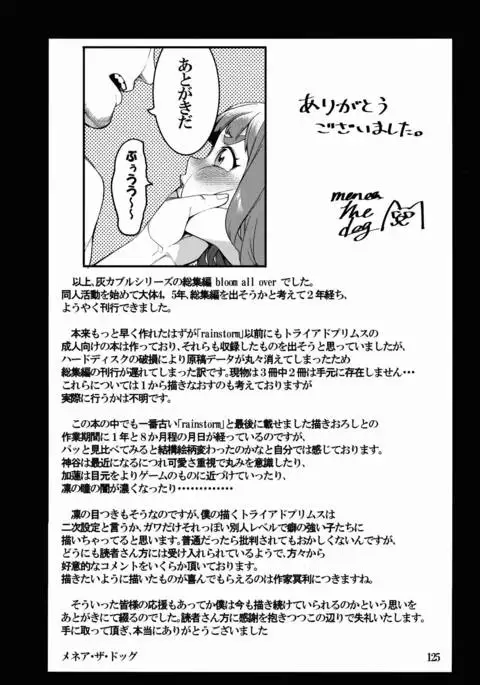 あとがきだ
ぶぅうう〜〜
ありがとう
ございました。
menea
the
dog
以上、灰カブルシリーズの総集編 bloom all over でした。
同人活動を始めて大体4，5年、総集編を出そうかと考えて２年経ち、
ようやく刊行できました。
本来もっと早く作れたはずが「rainstorm」以前にもトライアドプリムスの
成人向けの本は作っており、それらも収録したものを出そうと思っていましたが、
ハードディスクの破損により原稿データが丸々消えてしまったため
総集編の刊行が遅れてしまった訳です。現物は３冊中２冊は手元に存在しません…
これらについては１から描きなおすのも考えておりますが
実際に行うかは不明です。
この本の中でも一番古い「rainstorm」と最後に載せました描きおろしとの
作業期間に１年と８か月程の月日が経っているのですが、
パッと見比べてみると結構絵柄変わったのかなと自分では感じております。
神谷は最近になるにつれ可愛さ重視で丸みを意識したり、
加蓮は目元をよりゲームのものに近づけていったり、
凛の瞳の闇が濃くなったり…………
凛の目つきもそうなのですが、僕の描くトライアドプリムスは
二次設定と言うか、ガワだけそれっぽい別人レベルで癖の強い子たちに
描いちゃってると思います。普通だったら批判されてもおかしくないんですが、
どうにも読者さん方には受け入れられているようで、方々から
好意的なコメントをいくらか頂いております。
描きたいように描いたものが喜んでもらえるのは作家冥利につきますね。
そういった皆様の応援もあってか僕は今も描き続けていられるのかという思いを
あとがきにて綴るのでした。読者さん方に感謝を抱きつつこの辺りで失礼いたします。
手に取って頂き、本当にありがとうございました
メネア・ザ・ドッグ
125